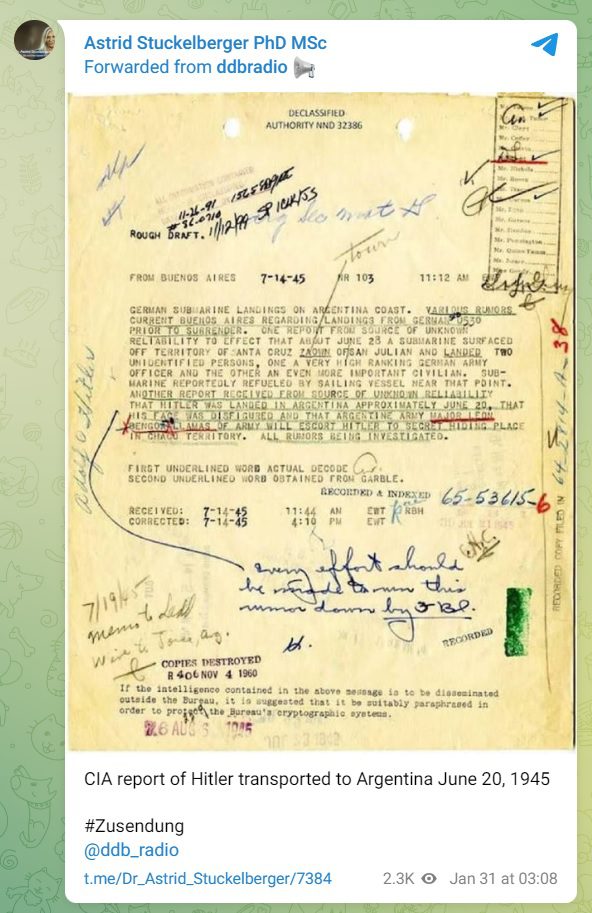 Astrid Stuckelberger PhD MSc
Forwarded from ddbradio
DECLASSIFIED
AUTHORITY NND 32386
11-26-91
ROUGH DRAFT.
town
FROM BUENOS AIRES 7-14-45 NR 103 11:12 AM
GERMAN SUBMARINE LANDINGS ON ARGENTINA COAST. VARIOUS RUMORS
CURRENT BUENOS AIRES REGARDING LANDINGS FROM GERMAN 0530
PRIOR TO SURRENDER. ONE REPORT FROM SOURCE OF UNKNOWN
RELIABILITY TO EFFECT THAT ABOUT JUNE 28 A SUBMARINE SURFACED
OFF TERRITORY OF SANTA CRUZ ZAOWN OFSAN JULIAN AND LANDED TWO
UNIDENTIFIED PERSONS, ONE A VERY HIGH RANKING GERMAN ARMY
OFFICER AND THE OTHER AN EVEN MORE IMPORTANT CIVILIAN. SUB-
MARINE REPORTEDLY REFUELED BY SAILING VESSEL NEAR THAT POINT.
ANOTHER REPORT RECEIVED FROM SOURCE OF UNKNOWN RELIABILITY
THAT HITLER WAS LANDED IN ARGENTINA APPROXIMATELY JUNE 20, THAT
HIS FACE WAS DISFIGURED AND THAT ARGENTINE ARMY MAJOR LEON
BENGOA LLAMAS OF ARMY WILL ESCORT HITLER TO SECRET HIDING PLACE
IN CHACO TERRITORY. ALL RUMORS BEING INVESTIGATED.
Adolf Hitler
FIRST UNDERLINED WORD ACTUAL DECODE
SECOND UNDERLINED WORD OBTAINED FROM GARBLE.
RECORDED & INDEXED 65-53615-6
RECEIVED: 7-14-45 11:44 AM EWT RBH
CORRECTED: 7-14-45 4:10 PM EWT
RECORDED COPY FILED IN 64-2814-A-38
every effort should
be made to run this
rumor down by
H.
7/19/45
memo to
Wire to
RECORDED
COPIES DESTROYED
R 406 NOV 4 1960
If the intelligence contained in the above message is to be disseminated
outside the Bureau, it is suggested that it be suitably paraphrased in
order to protect the Bureau's cryptographic systems.
AUG 1945
CIA report of Hitler transported to Argentina June 20, 1945
#Zusendung
@ddb_radio
t.me/Dr_Astrid_Stuckelberger/7384 2.3K Jan 31 at 03:08